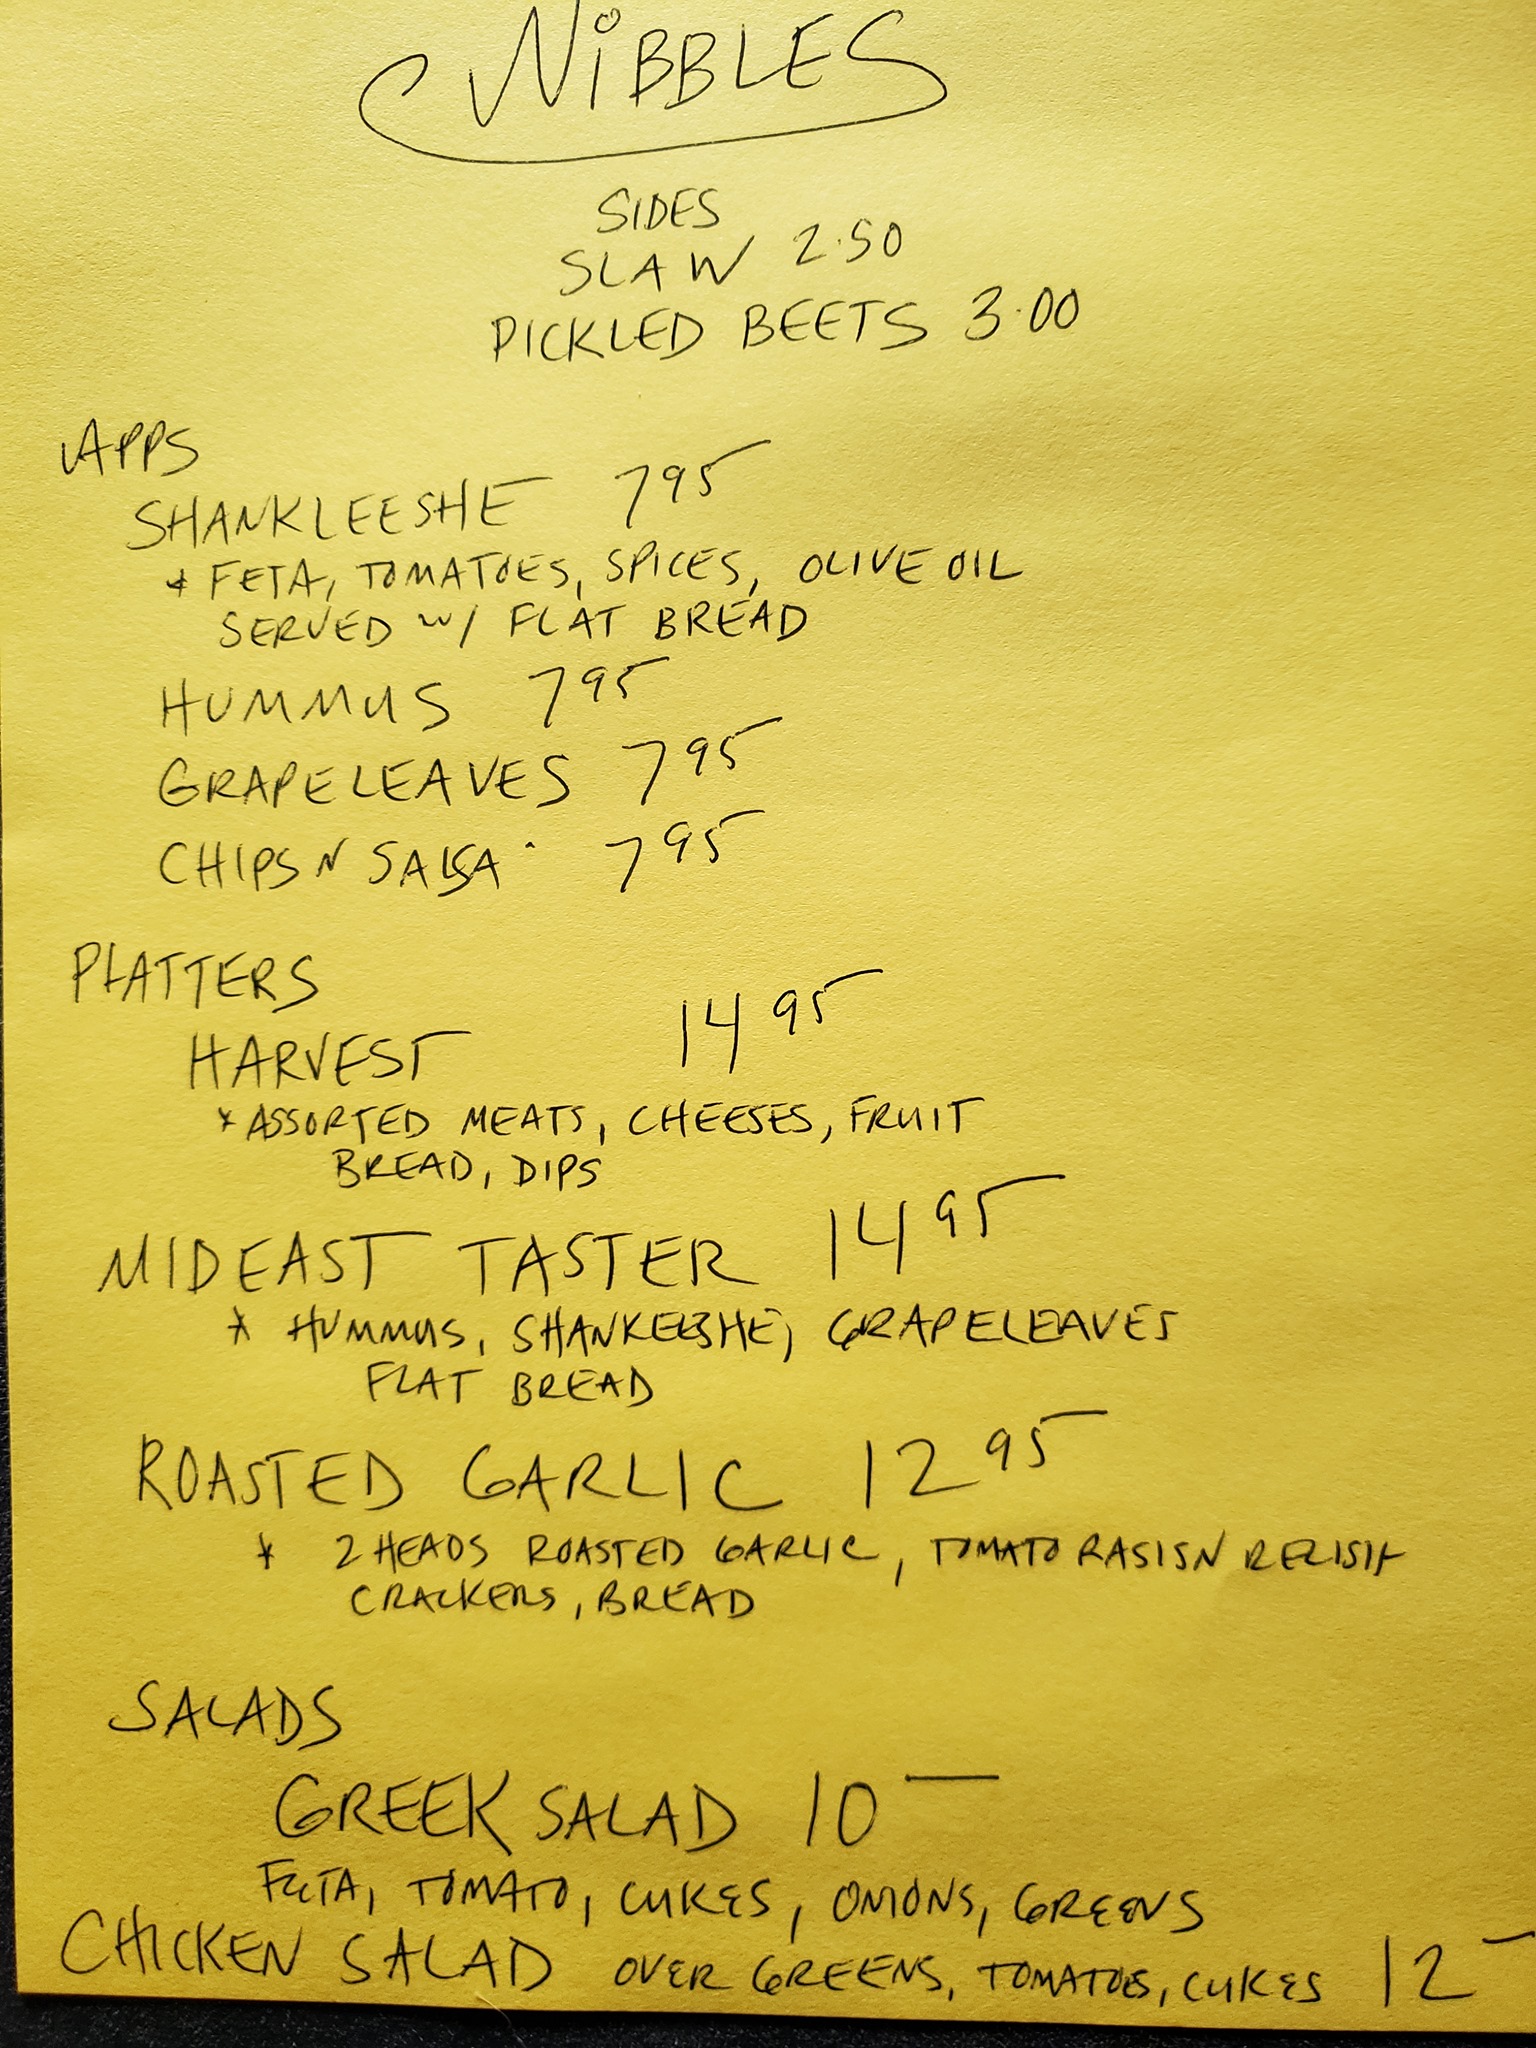 NiBBLES
SIDES
SLAW 2.50
PICKLED BEETS 3.00
APPS
SHANKLEESHE 795
* FETA, TOMATOES, SPICES, OLIVE OIL
SERVED W/ FLAT BREAD
HUMMUS 795
GRAPELEAVES 795
CHIPS N SALSA 795
PLATTERS
HARVEST 1495
* ASSORTED MEATS, CHEESES, FRUIT
BREAD, DIPS
MIDEAST TASTER 1495
* HUMMUS, SHANKEESHE, GRAPELEAVES
FLAT BREAD
ROASTED GARLIC 1295
* 2 HEADS ROASTED GARLIC, TOMATO RASISN RELISH
CRACKERS, BREAD
SALADS
GREEK SALAD 10 —
FETA, TOMATO, CUKES, ONIONS, GREENS
CHICKEN SALAD OVER GREENS, TOMATOES, CUKES 12 —